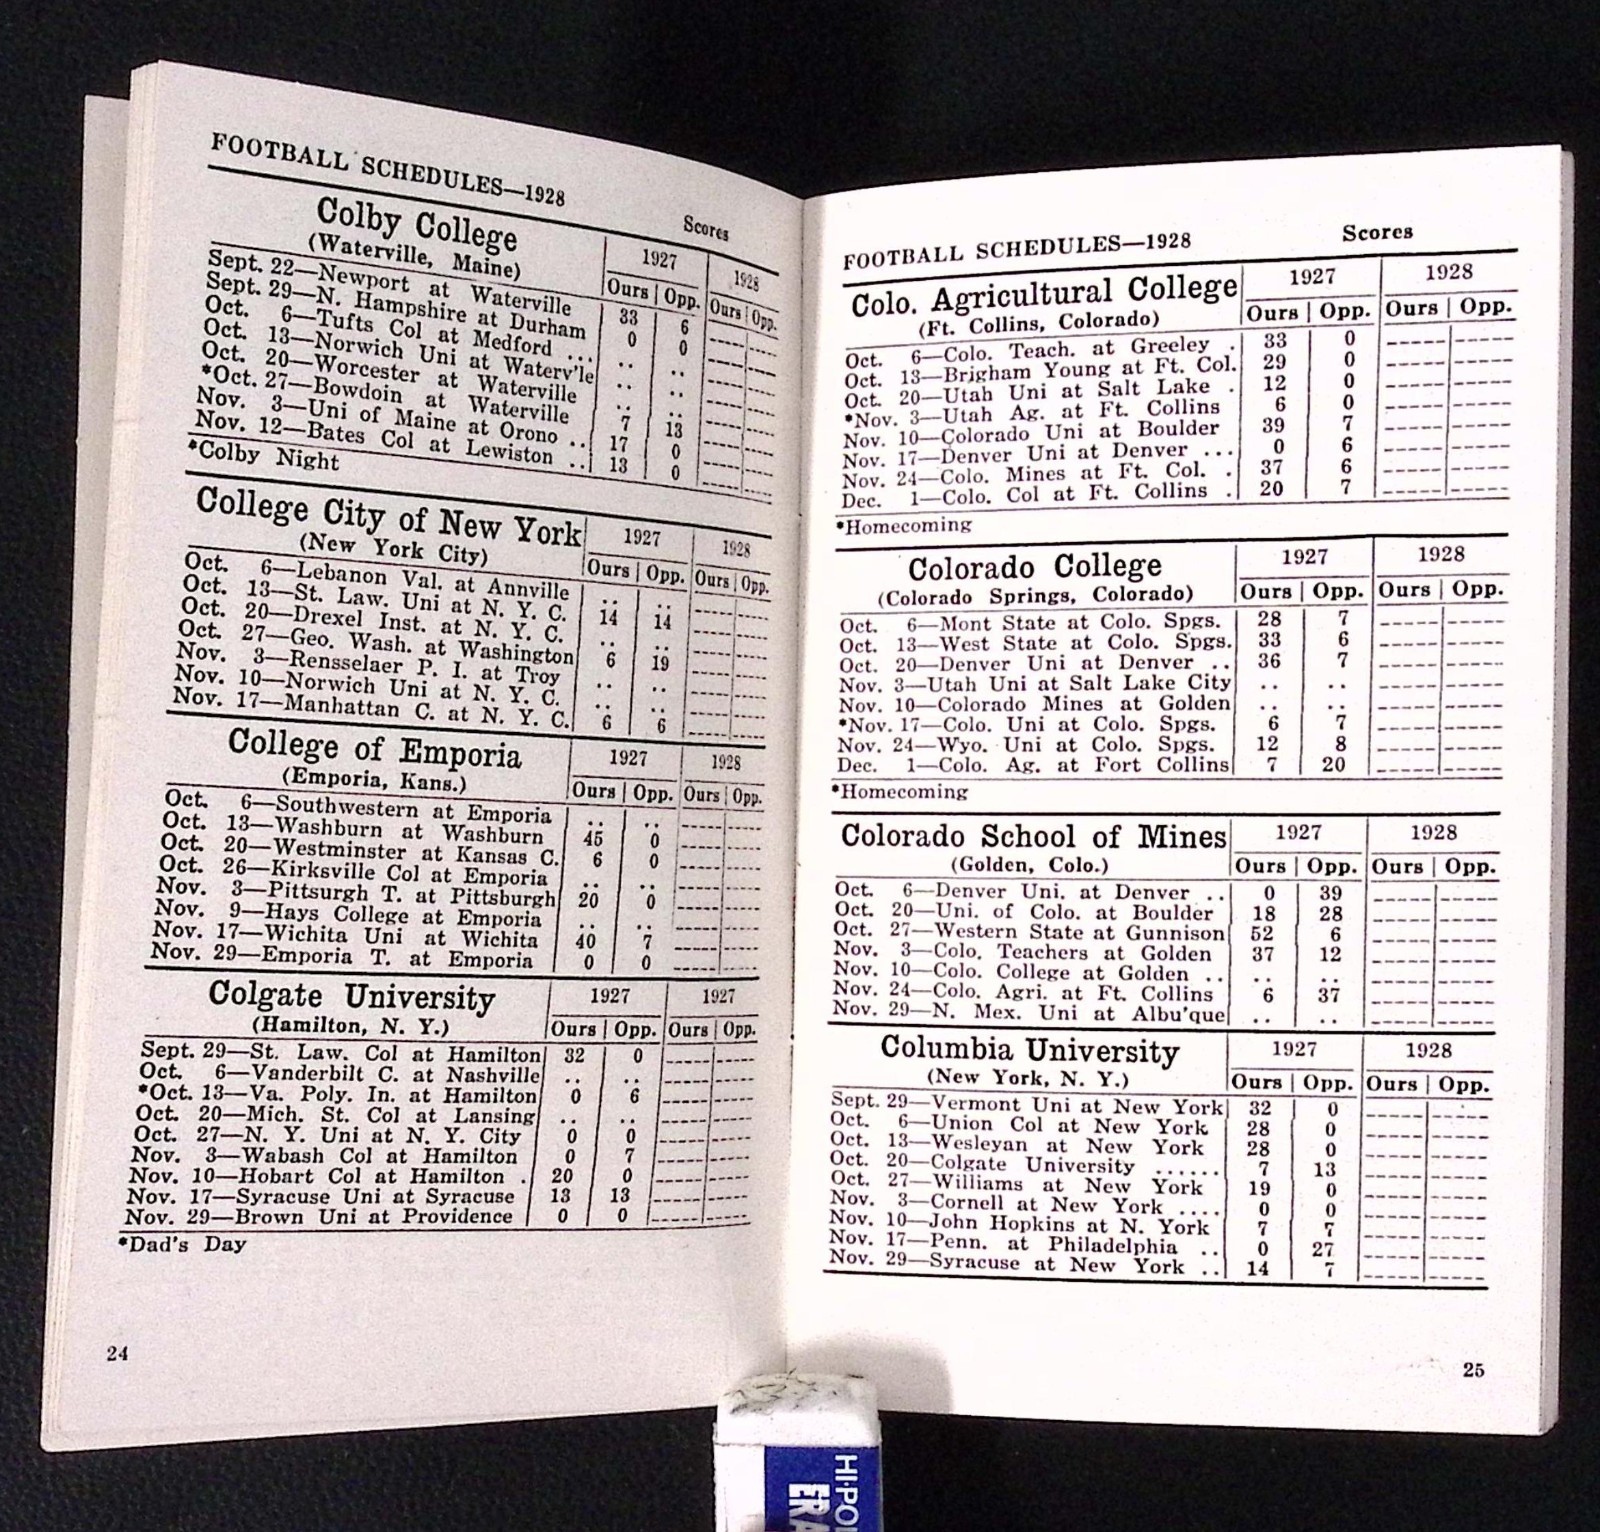 FOOTBALL SCHEDULES—1928
Scores
Colby College
(Waterville, Maine)
1927 1928
Ours | Opp. Ours | Opp.
Sept. 22—Newport at Waterville 33 6
Sept. 29—N. Hampshire at Durham 0 0
Oct. 6—Tufts Col at Medford ... .. ..
Oct. 13—Norwich Uni at Waterv'le .. ..
Oct. 20—Worcester at Waterville .. ..
*Oct. 27—Bowdoin at Waterville 7 13
Nov. 3—Uni of Maine at Orono .. 17 0
Nov. 12—Bates Col at Lewiston .. 13 0
*Colby Night
College City of New York
(New York City)
1927 1928
Ours | Opp. Ours | Opp.
Oct. 6—Lebanon Val. at Annville .. ..
Oct. 13—St. Law. Uni at N. Y. C. 14 14
Oct. 20—Drexel Inst. at N. Y. C. .. ..
Oct. 27—Geo. Wash. at Washington 6 19
Nov. 3—Rensselaer P. I. at Troy .. ..
Nov. 10—Norwich Uni at N. Y. C. .. ..
Nov. 17—Manhattan C. at N. Y. C. 6 6
College of Emporia
(Emporia, Kans.)
1927 1928
Ours | Opp. Ours | Opp.
Oct. 6—Southwestern at Emporia .. ..
Oct. 13—Washburn at Washburn 45 0
Oct. 20—Westminster at Kansas C. 6 0
Oct. 26—Kirksville Col at Emporia .. ..
Nov. 3—Pittsurgh T. at Pittsburgh 20 0
Nov. 9—Hays College at Emporia .. ..
Nov. 17—Wichita Uni at Wichita 40 7
Nov. 29—Emporia T. at Emporia 0 0
Colgate University
(Hamilton, N. Y.)
1927 1927
Ours | Opp. Ours | Opp.
Sept. 29—St. Law. Col at Hamilton 32 0
Oct. 6—Vanderbilt C. at Nashville .. ..
*Oct. 13—Va. Poly. In. at Hamilton 0 6
Oct. 20—Mich. St. Col at Lansing .. ..
Oct. 27—N. Y. Uni at N. Y. City 0 0
Nov. 3—Wabash Col at Hamilton 0 7
Nov. 10—Hobart Col at Hamilton . 20 0
Nov. 17—Syracuse Uni at Syracuse 13 13
Nov. 29—Brown Uni at Providence 0 0
*Dad's Day
24
FOOTBALL SCHEDULES—1928
Scores
Colo. Agricultural College
(Ft. Collins, Colorado)
1927 1928
Ours | Opp. Ours | Opp.
Oct. 6—Colo. Teach. at Greeley . 33 0
Oct. 13—Brigham Young at Ft. Col. 29 0
Oct. 20—Utah Uni at Salt Lake . 12 0
*Nov. 3—Utah Ag. at Ft. Collins 6 0
Nov. 10—Colorado Uni at Boulder 39 7
Nov. 17—Denver Uni at Denver ... 0 6
Nov. 24—Colo. Mines at Ft. Col. . 37 6
Dec. 1—Colo. Col at Ft. Collins . 20 7
*Homecoming
Colorado College
(Colorado Springs, Colorado)
1927 1928
Ours | Opp. Ours | Opp.
Oct. 6—Mont State at Colo. Spgs. 28 7
Oct. 13—West State at Colo. Spgs. 33 6
Oct. 20—Denver Uni at Denver .. 36 7
Nov. 3—Utah Uni at Salt Lake City .. ..
Nov. 10—Colorado Mines at Golden .. ..
*Nov. 17—Colo. Uni at Colo. Spgs. 6 7
Nov. 24—Wyo. Uni at Colo. Spgs. 12 8
Dec. 1—Colo. Ag. at Fort Collins 7 20
*Homecoming
Colorado School of Mines
(Golden, Colo.)
1927 1928
Ours | Opp. Ours | Opp.
Oct. 6—Denver Uni. at Denver .. 0 39
Oct. 20—Uni. of Colo. at Boulder 18 28
Oct. 27—Western State at Gunnison 52 6
Nov. 3—Colo. Teachers at Golden 37 12
Nov. 10—Colo. College at Golden .. .. ..
Nov. 24—Colo. Agri. at Ft. Collins 6 37
Nov. 29—N. Mex. Uni at Albu'que .. ..
Columbia University
(New York, N. Y.)
1927 1928
Ours | Opp. Ours | Opp.
Sept. 29—Vermont Uni at New York 32 0
Oct. 6—Union Col at New York 28 0
Oct. 13—Wesleyan at New York 28 0
Oct. 20—Colgate University ...... 7 13
Oct. 27—Williams at New York 19 0
Nov. 3—Cornell at New York .... 0 0
Nov. 10—John Hopkins at N. York 7 7
Nov. 17—Penn. at Philadelphia .. 0 27
Nov. 29—Syracuse at New York .. 14 7
25
HI-POL
ERA